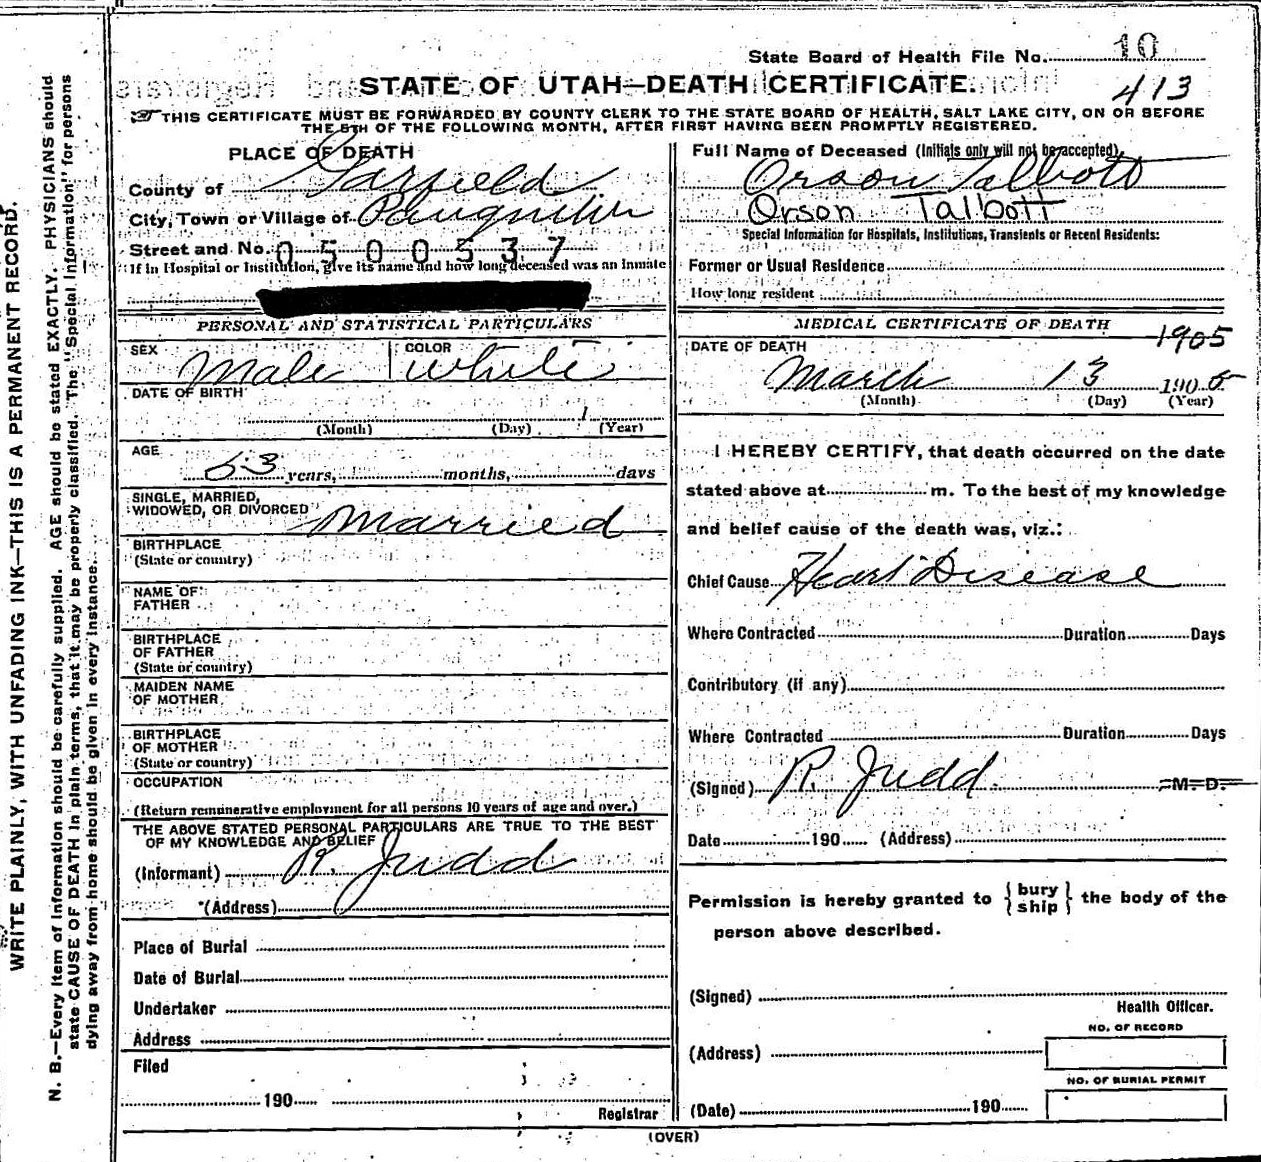 State Board of Health File No. 10
413
STATE OF UTAH—DEATH CERTIFICATE.
THIS CERTIFICATE MUST BE FORWARDED BY COUNTY CLERK TO THE STATE BOARD OF HEALTH, SALT LAKE CITY, ON OR BEFORE
THE 5TH OF THE FOLLOWING MONTH, AFTER FIRST HAVING BEEN PROMPTLY REGISTERED.
PLACE OF DEATH
County of Garfield
City, Town or Village of Panguitch
Street and No. 0500537
If in Hospital or Institution, give its name and how long deceased was an inmate
PERSONAL AND STATISTICAL PARTICULARS
SEX Male COLOR White
DATE OF BIRTH
1
(Month) (Day) (Year)
AGE
53 years, months, days
SINGLE, MARRIED,
WIDOWED, OR DIVORCED Married
BIRTHPLACE
(State or country)
NAME OF
FATHER
BIRTHPLACE
OF FATHER
(State or country)
MAIDEN NAME
OF MOTHER
BIRTHPLACE
OF MOTHER
(State or country)
OCCUPATION
(Return remunerative employment for all persons 10 years of age and over.)
THE ABOVE STATED PERSONAL PARTICULARS ARE TRUE TO THE BEST
OF MY KNOWLEDGE AND BELIEF
(Informant) R. Judd
(Address)
Place of Burial
Date of Burial
Undertaker
Address
Filed
190
Registrar
Full Name of Deceased (Initials only will not be accepted)
Orson Talbott
Orson Talbott
Special Information for Hospitals, Institutions, Transients or Recent Residents:
Former or Usual Residence
How long resident
MEDICAL CERTIFICATE OF DEATH
1905
DATE OF DEATH
March 13 1905
(Month) (Day) (Year)
I HEREBY CERTIFY, that death occurred on the date
stated above at m. To the best of my knowledge
and belief cause of the death was, viz.:
Chief Cause Heart Disease
Where Contracted Duration Days
Contributory (if any)
Where Contracted Duration Days
(Signed) R. Judd M. D.
Date 190 (Address)
Permission is hereby granted to { bury
ship } the body of the
person above described.
(Signed)
Health Officer.
NO. OF RECORD
(Address)
NO. OF BURIAL PERMIT
(Date) 190
(OVER)
WRITE PLAINLY, WITH UNFADING INK—THIS IS A PERMANENT RECORD.
N. B.—Every item of information should be carefully supplied. AGE should be stated EXACTLY. PHYSICIANS should
state CAUSE OF DEATH in plain terms, that it may be properly classified. The "Special Information" for persons
dying away from home should be given in every instance.